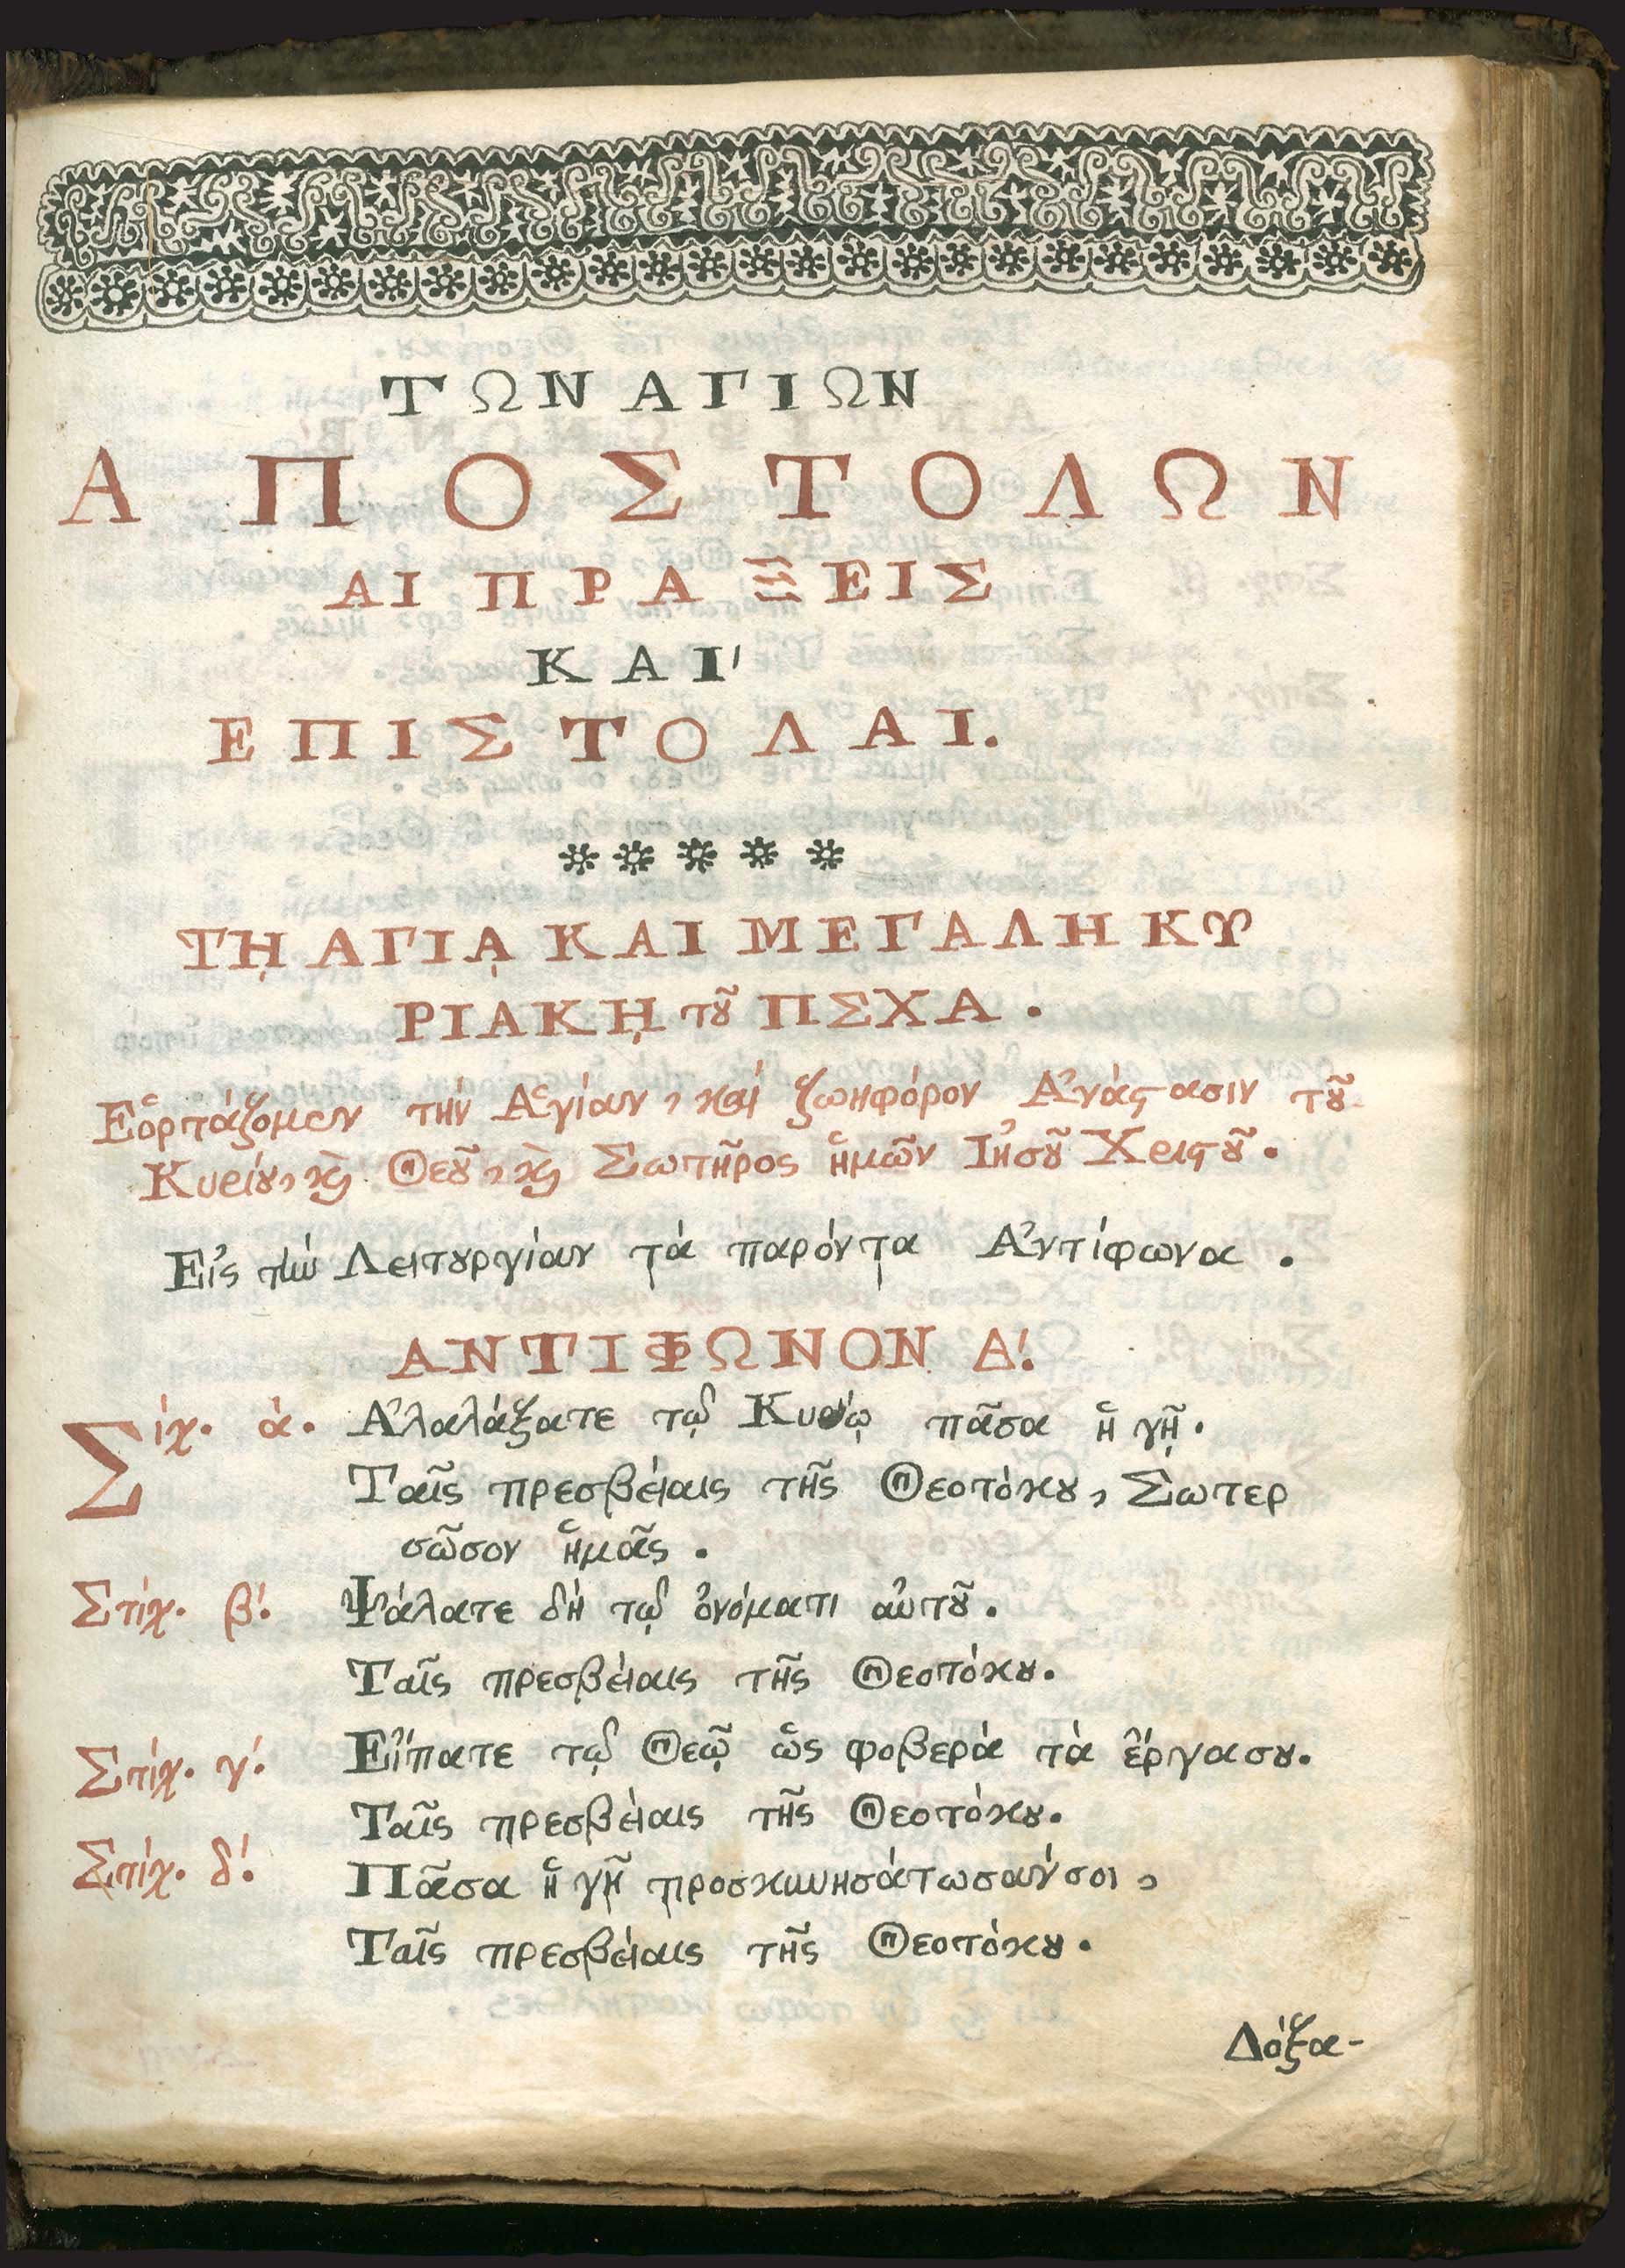 ΤΩΝ ΑΓΙΩΝ
ΑΠΟΣΤΟΛΩΝ
ΑΙ ΠΡΑΞΕΙΣ
ΚΑΙ'
ΕΠΙΣΤΟΛΑΙ.
Τῌ ΑΓΙᾼ ΚΑΙ ΜΕΓΑΛΗ ΚΥ
ΡΙΑΚῌ τȣ͂ ΠΣΧΑ.
Εὁρτάζομεν τήν Ἁγίαν, καί ζωηφόρον Ἀνάϛασιν τȣ͂
Κυρίȣ, ϗ̀ Θεȣ͂, ϗ̀ Σωτῆρος ἡμῶν Ἰησȣ͂ Χριϛȣ͂.
Εἰς τὴν Λειτȣργίαν τά παρόντα Ἀντίφωνα.
ΑΝΤΙΦΩΝΟΝ Α'.
Στίχ. ά. Ἀλαλάξατε τῷ Κυρίῳ πᾶσα ἡ γῆ.
Ταῖς πρεσβείαις τῆς Θεοτόκȣ, Σῶτερ
σῶσον ἡμᾶς.
Στίχ. β'. Ψάλατε δή τῷ ὀνόματι αὐτȣ͂.
Ταῖς πρεσβείαις τῆς Θεοτόκȣ.
Στίχ. γ'. Εἴπατε τῷ Θεῷ ὡς φοβερά τὰ ἔργασȣ.
Ταῖς πρεσβείαις τῆς Θεοτόκȣ.
Στίχ. δ'. Πᾶσα ἡ γῆ προσκυνησάτωσανσοι,
Ταῖς πρεσβείαις τῆς Θεοτόκȣ.
Δόξα-